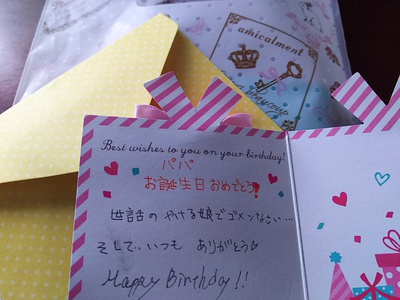 amicalment
Best wishes to you on your birthday!
パパ
お誕生日おめでとう!
世話のやける娘でゴメンなさい…
そして‥いつも ありがとう♡
Happy Birthday!!